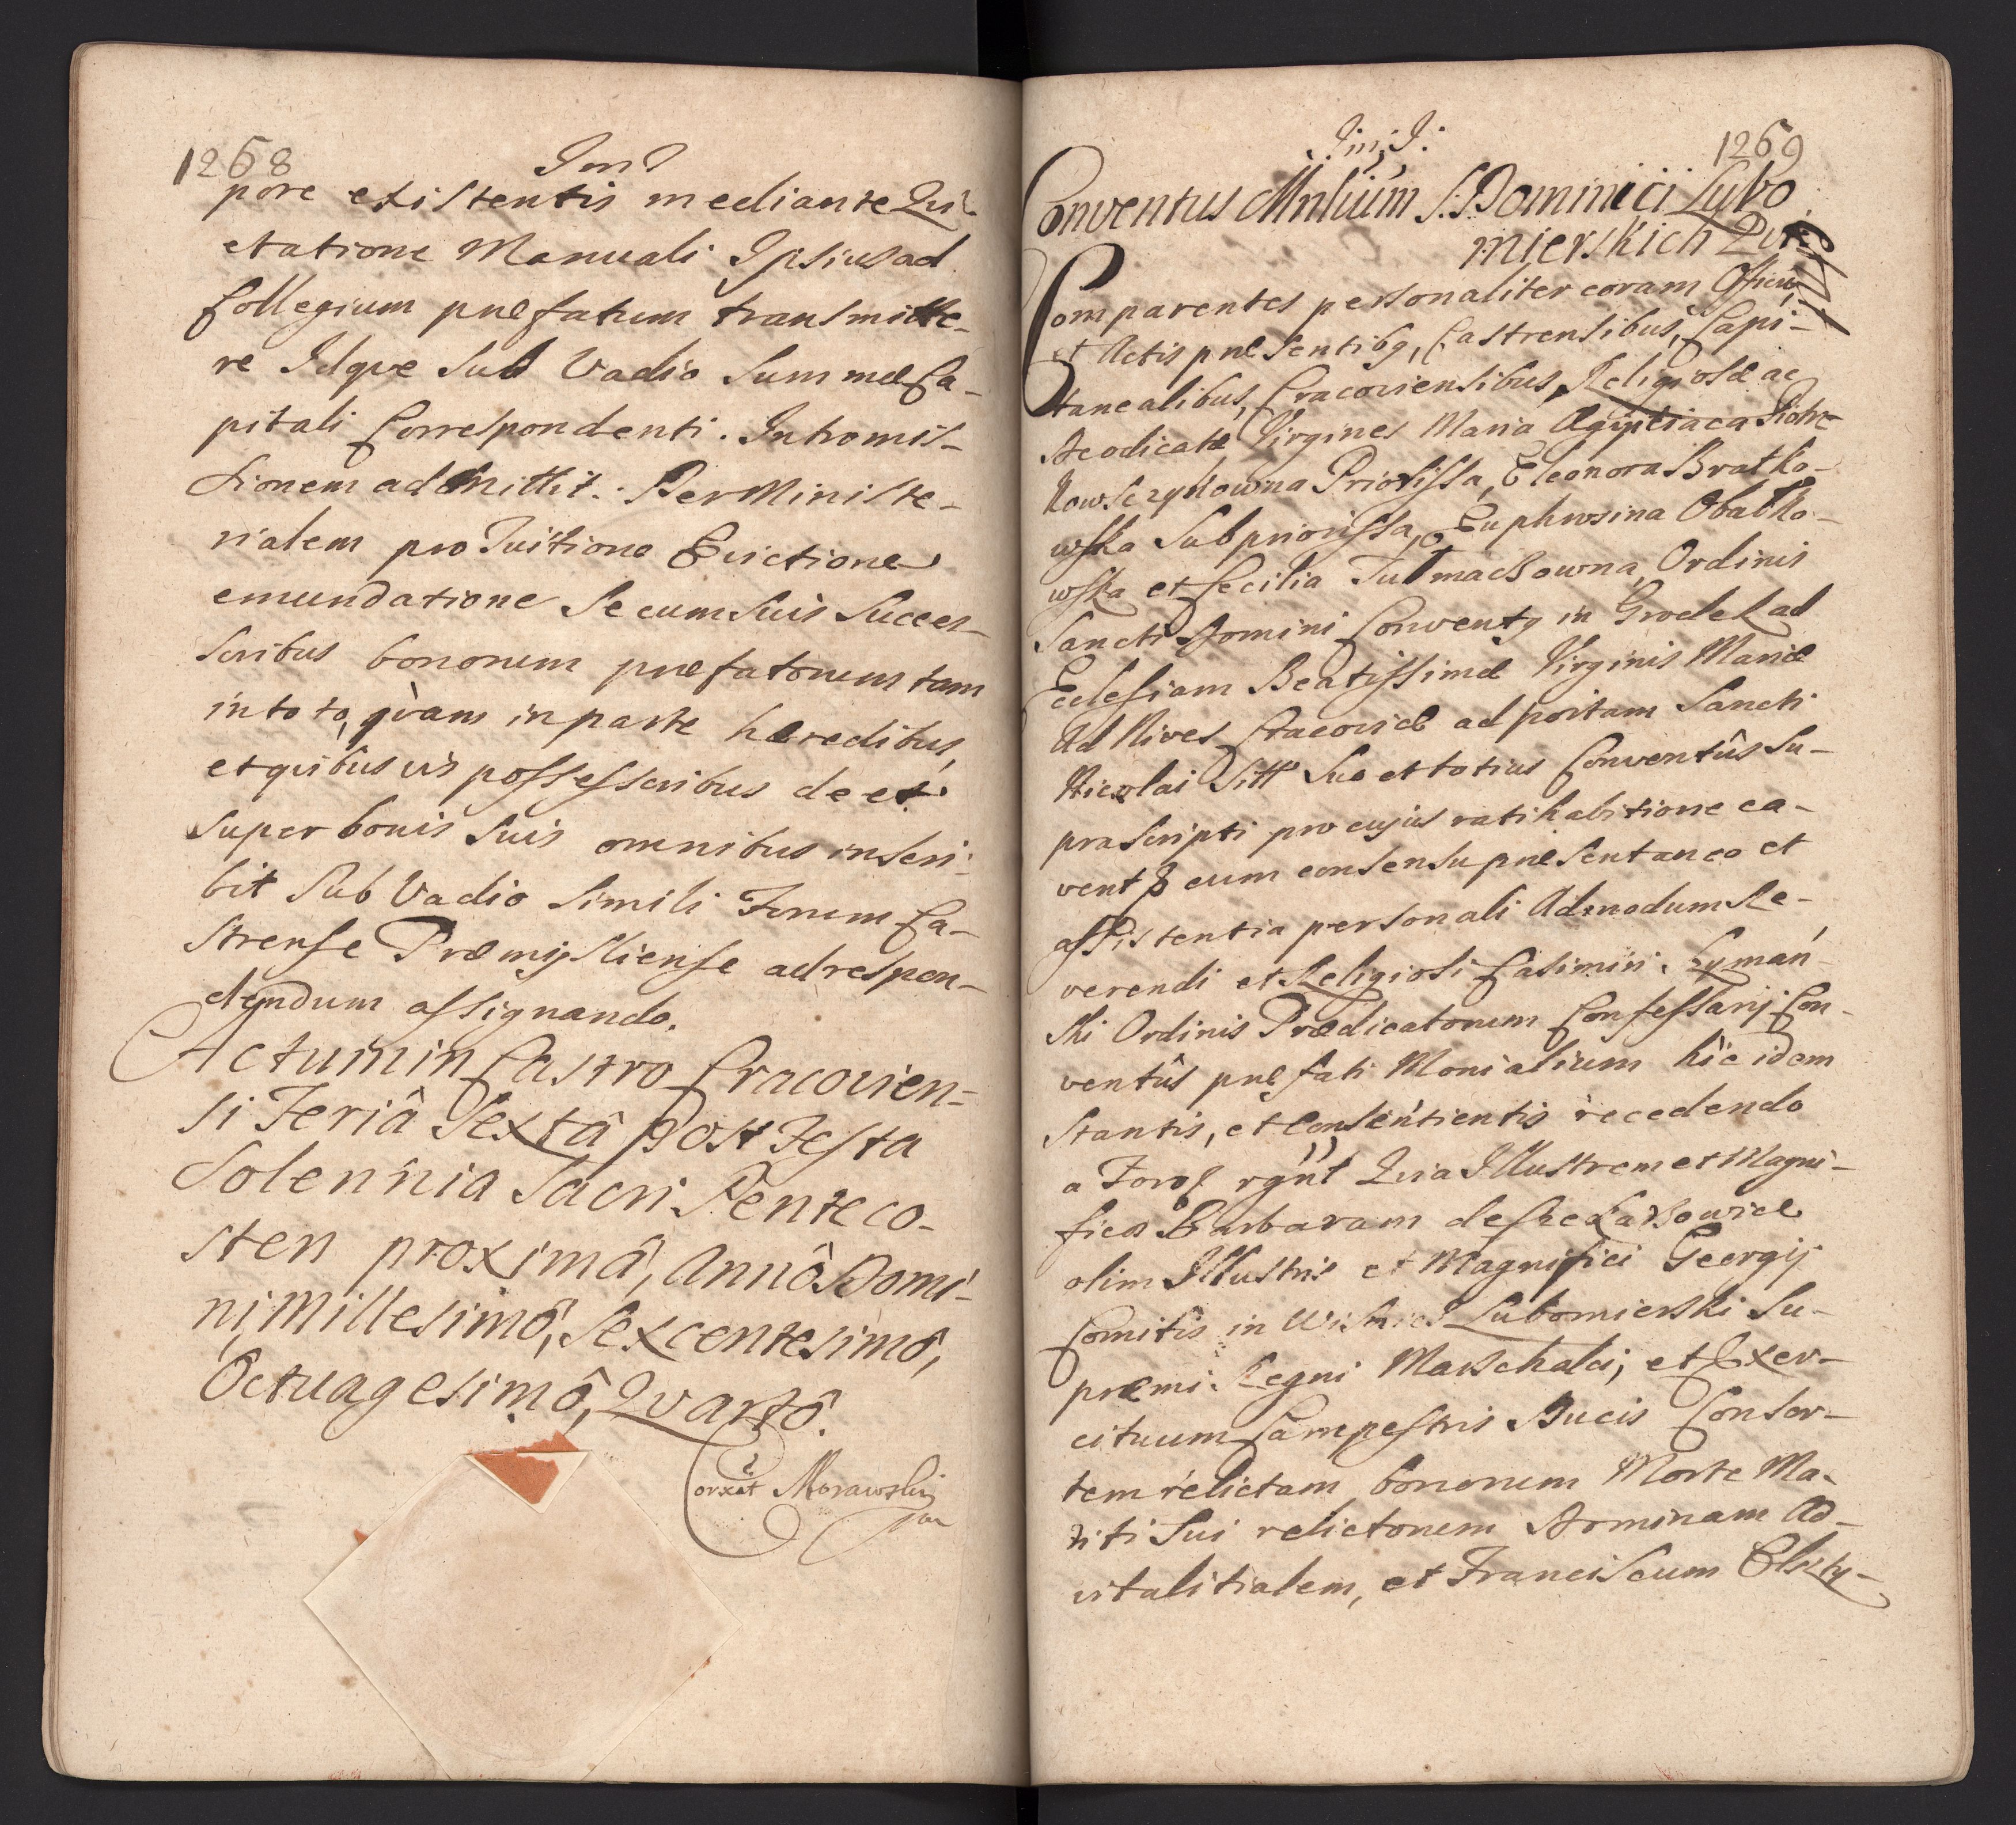 1268
pore existentis mediante Qui-
etatione Manuali Ipsius ad
Collegium præfatum transmitte-
re Idque sub Vadio summæ Ca-
pitali Correspondenti. Intromis-
sionem admittit. Per Ministe-
rialem pro Tuitione Evictione
emundatione se cum suis succes-
soribus bonorum præfatorum tam
in toto, quàm in parte hæredibus,
et quibûsvis possessoribus de et
super bonis suis omnibus inscri-
bit sub Vadio simili Forum Ca-
strense Præmijsliense ad respon-
dendum assignando.
Actum in Castro Cracovien-
si Feriâ Sextâ Post Festa
Solennia Sacri Penteco-
sten proximâ, Annô Domi-
ni Millesimô, Sexcentesimô,
Octuagesimô, Qvartô.
Corxit Morawski
1269
Conventus Mnlium S. Dominici Lubo
mierskich
Comparentes personaliter coram Officio,
et Actis præsentibq, Castrensibus, Capi-
tanealibus, Cracoviensibus, Religiosæ ac
Deodicatæ Virgines Maria Ægiptiaca Piotr-
kowszczykowna Priorissa, Eleonora Bratko-
wska Subpriorissa, Euphrosina Obalko-
wska et Cecilia Tulmackowna, Ordinis
Sancti Domini Conventq in Grodek ad
Ecclesiam Beatissimæ Virginis Mariæ
Ad Nives Cracoviæ ad portam Sancti
Nicolai Sitt suo et totius Conventûs su-
prascripti pro cujus ratihabitione ca-
vent cum consensu præsentaneo et
assistentia personali Admodum Re-
verendi et Religiosi Casimiri Szyman-
ski Ordinis Prædicatorum Confessarij Con-
ventûs præfati Monialium hic idem
stantis, et consentientis recedendo
a Foro rgnt Quia Illustrem et Magni-
ficam Barbaram de
olim Illustris et Magnifici Georgij
Comitis in Wisnicz Lubomierski Su-
premi Regni Marschalci, et Exer-
cituum Campestris Ducis Consor-
tem relictam bonorum Morte Ma-
riti sui relictorum Dominam Ad-
vitalitialem, et Franciscum